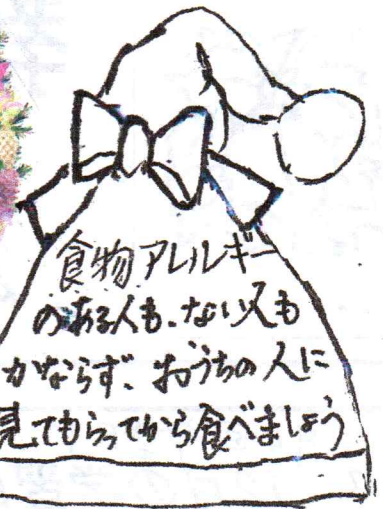 食物アレルギー
のある人も、ない人も
かならず、おうちの人に
見てもらってから食べましょう